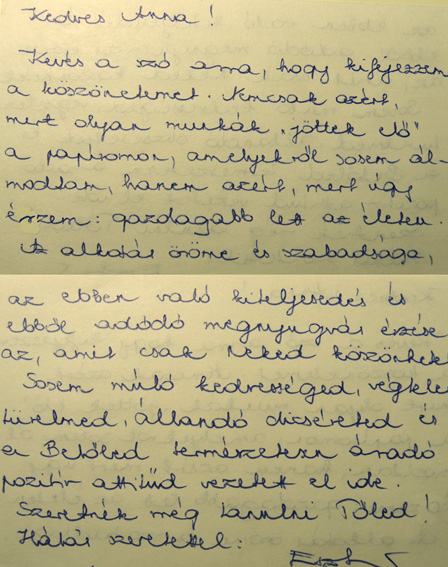 Kedves Anna!
Kevés a szó arra, hogy kifejezzem
a köszönetemet. Nemcsak azért,
mert olyan munkák "jöttek elő"
a papíromon, amelyekről sosem ál-
modtam, hanem azért, mert úgy
érzem: gazdagabb lett az életem.
Az alkotás öröme és szabadsága,
az ebben való kiteljesedés és
ebből adódó megnyugvás érzése
az, amit csak Neked köszönhet
Sosem múló kedvességed, végtele
türelmed, állandó dicséreted és
a Belőled természetesen áradó
pozitív attitűd vezetett el ide.
Szeretnék még tanulni Tőled!
Hálás szeretettel: